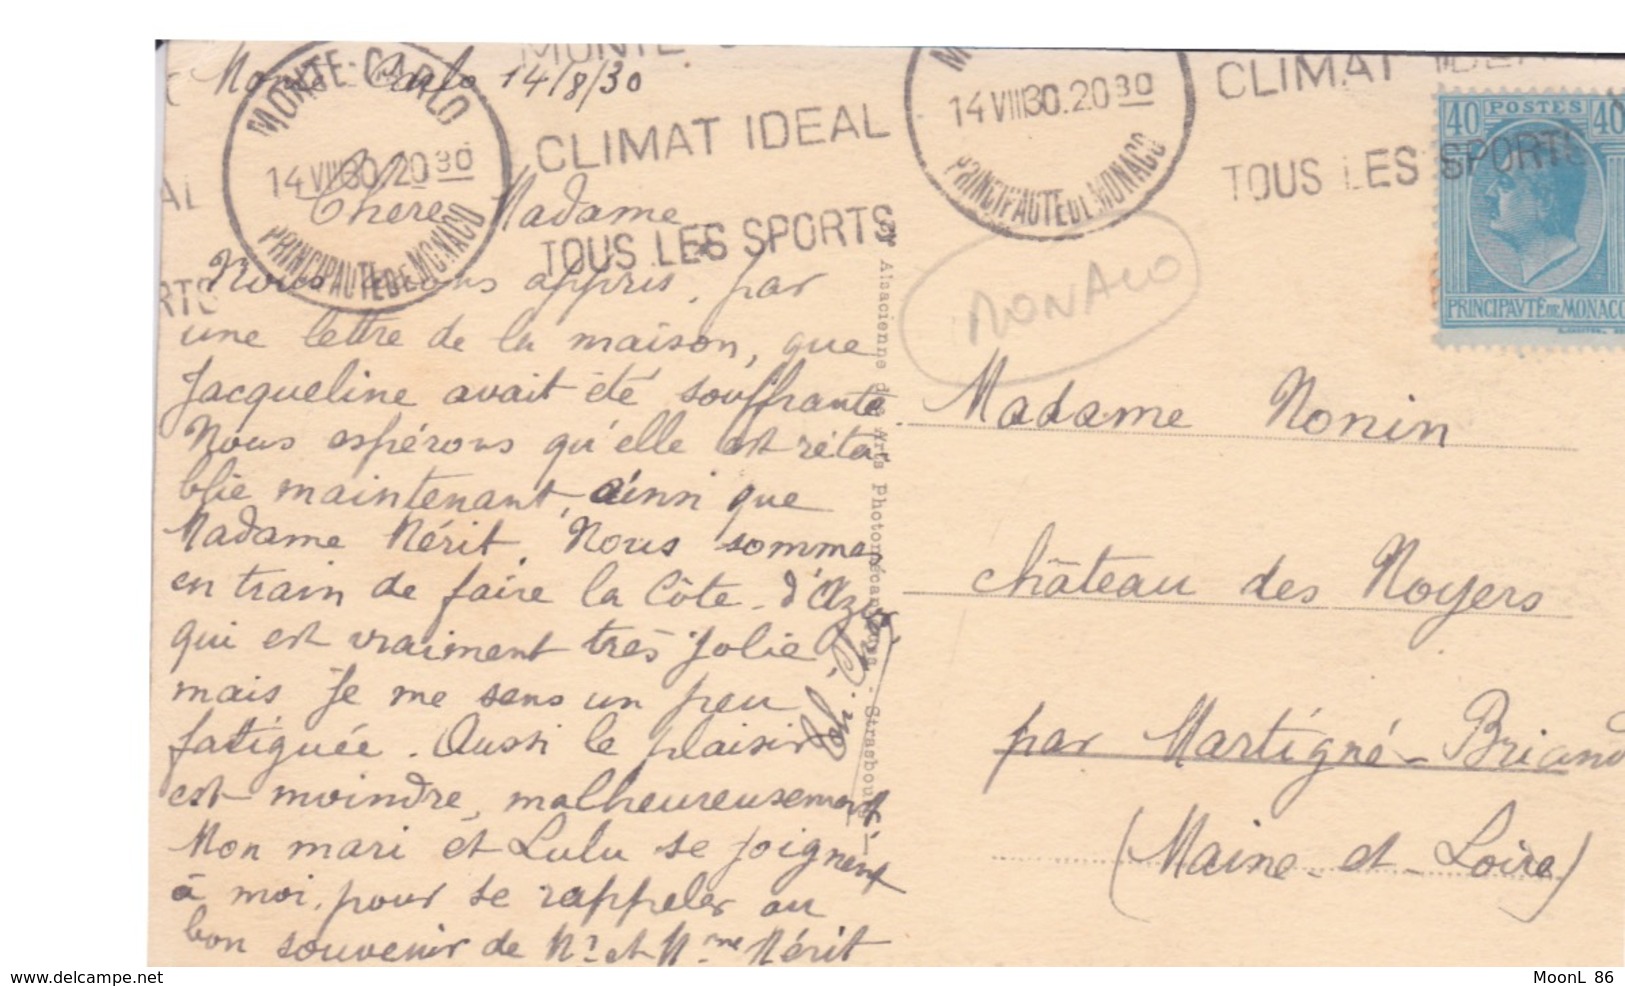 Monte-Carlo 14/8/30
Chère Madame
Nous avons appris, par
une lettre de la maison, que
Jacqueline avait été souffrante.
Nous espérons qu'elle est réta-
blie maintenant, ainsi que
Madame Mérit. Nous sommes
en train de faire la Côte-d'Azur
qui est vraiment très jolie
mais je me sens un peu
fatiguée. Aussi le plaisir
est moindre, malheureusement.
Mon mari et Lulu se joignent
à moi, pour se rappeler au
bon souvenir de Mr et Mme Mérit
MONTE-CARLO
14 VIII 30. 20 30
PRINCIPAUTE DE MONACO
CLIMAT IDEAL
TOUS LES SPORTS
14 VIII 30. 20 30
PRINCIPAUTE DE MONACO
CLIMAT IDEAL
TOUS LES SPORTS
40 POSTES 40
PRINCIPAVTÉ DE MONACO
MONACO
Alsacienne des Arts Photomécaniques - Strasbourg
Madame Nonin
Château des Noyers
par Martigné-Briand
(Maine-et-Loire)
MoonL 86
www.delcampe.net